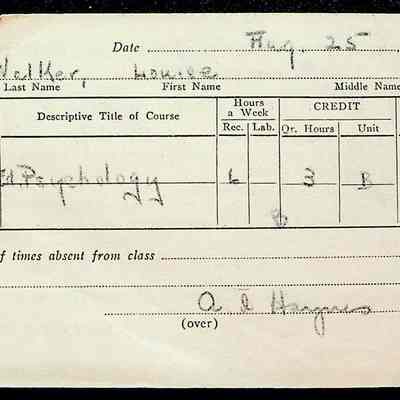 Date Aug. 25
Walker, Louise
Last Name First Name Middle Name
Descriptive Title of Course Hours a Week CREDIT
Rec. Lab. Qr. Hours Unit
Ed. Psychology 6 3 B
f times absent from class
A I Haynes
(over)